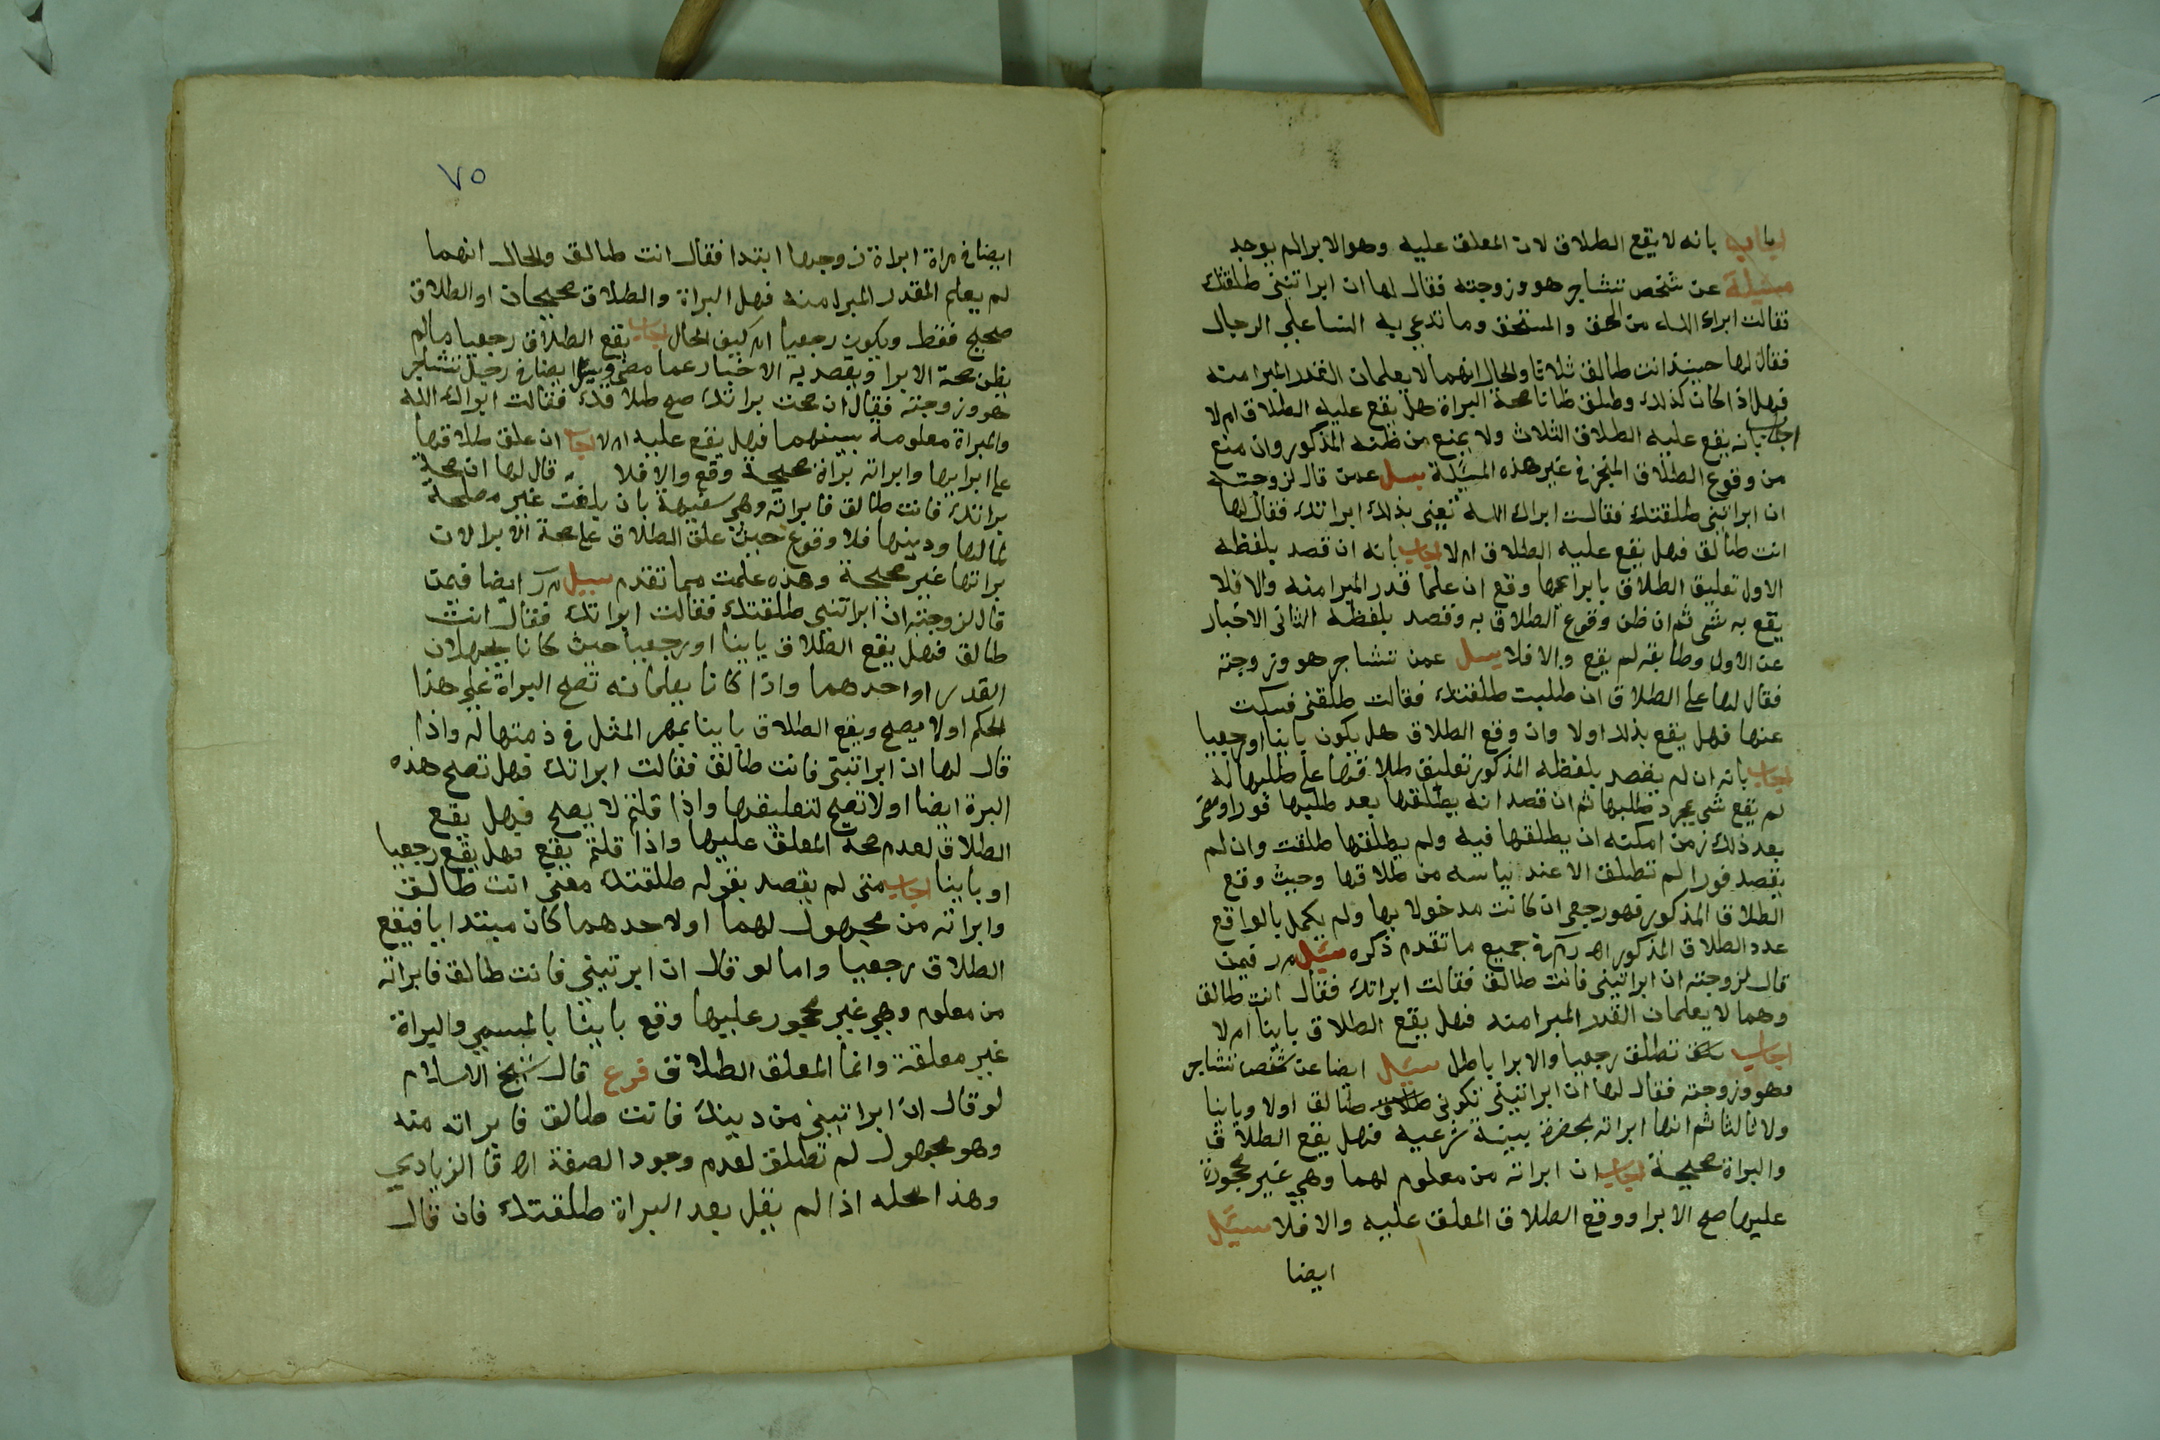 اجاب بانه لا يقع الطلاق لان المعلق عليه وهو الابرا لم يوجد
مسئلة عن شخص تشاجر هو وزوجته فقال لها ان ابراتيني طلقتك
فقالت ابراك الله من الحق والمستحق وما تدعي به النسا على الرجال
فقال لها حينئذ انت طالق ثلاثا والحال انهما لا يعلمان القدر المبرا منه
فهل اذا كان كذلك وطلق ظانا صحة البراة هل يقع عليه الطلاق ام لا
اجاب بانه يقع عليه الطلاق الثلاث ولا يمنع من ظنه المذكور وان منع
من وقوع الطلاق المنجز في غير هذه المسئلة سيل عمن قال لزوجته
ان ابراتيني طلقتك فقالت ابراك الله تعني بذلك ابراتك فقال لها
انت طالق فهل يقع عليه الطلاق ام لا اجاب بانه ان قصد بلفظه
الاول تعليق الطلاق بابرايها وقع ان علما قدر المبرا منه والا فلا
يقع به شي ثم ان ظن وقوع الطلاق به وقصد بلفظه الثاني الاخبار
عن الاول وطابقه لم يقع والا فلا سيل عمن تشاجر هو وزوجته
فقال لها على الطلاق ان طلبت طلقتك فقالت طلقني فسكت
عنها فهل يقع بذلك اولا وان وقع الطلاق هل يكون باينا او رجعيا
اجاب بانه ان لم يقصد بلفظه المذكور تعليق طلاقها على طلبها له
لم يقع شي بمجرد طلبها ثم ان قصد انه يطلقها بعد طلبها فورا ومضى
بعد ذلك زمن امكنه ان يطلقها فيه ولم يطلقها طلقت وان لم
يقصد فورا لم تطلق الا عند ياسه من طلاقها وحيث وقع
الطلاق المذكور فهو رجعي ان كانت مدخولا بها ولم يكمل بالواقع
عدد الطلاق المذكور اه في جميع ما تقدم ذكره سيل م ر فيمن
قال لزوجته ان ابراتيني فانت طالق فقالت ابراتك فقال انت طالق
وهما لا يعلمان القدر المبرا منه فهل يقع الطلاق باينا ام لا
اجاب تطلق رجعيا والابرا باطل سيل ايضا عن شخص تشاجر
هو وزوجته فقال لها ان ابراتيني تكوني طالق اولا وثانيا
ولا ثالثا ثم انها ابراته بحضرة بينة شرعيه فهل يقع الطلاق
والبراة صحيحة اجاب ان ابراته من معلوم لهما وهي غير محجورة
عليها صح الابرا ووقع الطلاق المعلق عليه والا فلا سيل
ايضا
٧٥
ايضا في مراة ابراة زوجها ابتدا فقال انت طالق والحال انهما
لم يعلم المقدر المبرا منه فهل البراة والطلاق صحيحان او الطلاق
صحيح فقط ويكون رجعيا ام كيف الحال اجاب يقع الطلاق رجعيا مالم
يظن صحة الابرا ويقصد به الاخبار عما مضى وسيل ايضا في رجل تشاجر
هو وزوجته فقال ان صحت براتك صح طلاقك فقالت ابراك الله
والبراة معلومة بينهما فهل يقع عليه ام لا اجاب ان علق طلاقها
على ابرايها وابراته براة صحيحة وقع والا فلا قال لها ان صحة
براتك فانت طالق فابراته وهي سفيهة بان بلغت غير مصلحة
لمالها ودينها فلا وقوع حيث علق الطلاق على صحة الابرا لان
براتها غير صحيحة وهذه علمت مما تقدم سيل م ر ايضا فيمن
قال لزوجته ان ابراتيني طلقتك فقالت ابراتك فقال انت
طالق فهل يقع الطلاق باينا او رجعيا حيث كانا يجهلان
القدر او احدهما واذا كانا يعلمانه تصح البراة على هذا
الحكم اولا يصح ويقع الطلاق باينا بمهر المثل في ذمتها له واذا
قال لها ان ابراتيني فانت طالق فقالت ابراتك فهل تصح هذه
البرة ايضا اولا تصح لتعليقها واذا قلتم لا يصح فهل يقع
الطلاق لعدم صحة المعلق عليها واذا قلتم يقع فهل يقع رجعيا
او باينا اجاب متى لم يقصد بقوله طلقتك معنى انت طالق
وابراته من مجهول لهما او لاحدهما كان مبتدا يا فيقع
الطلاق رجعيا واما لو قال ان ابرتيني فانت طالق فابراته
من معلوم وهي غير محجور عليها وقع باينا بالمسمى والبراة
غير معلقة وانما المعلق الطلاق فرع قال شيخ الاسلام
لو قال ان ابراتيني من دينك فانت طالق فابراته منه
وهو مجهول لم تطلق لعدم وجود الصفة اه قا الزيادي
وهذا محله اذا لم يقل بعد البراة طلقتك فان قال